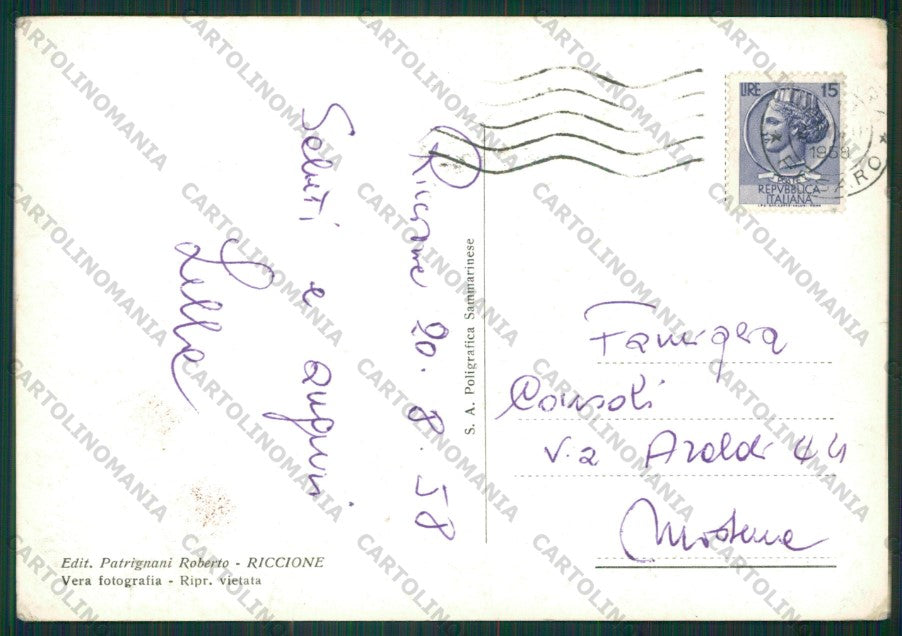 Riccione 20.8.58
Saluti e auguri
Lella
S. A. Poligrafica Sammarinese
LIRE 15
REPVBBLICA
ITALIANA
1958
Famiglia
Consoli
Via Araldi 44
Modena
Edit. Patrignani Roberto - RICCIONE
Vera fotografia - Ripr. vietata
CARTOLINOMANIA